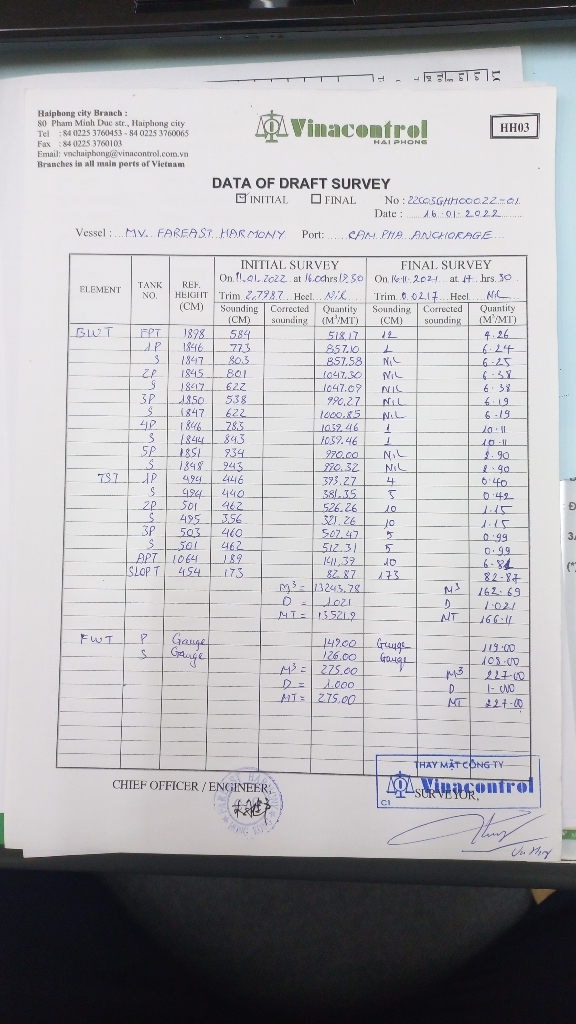 Haiphong city Branch :
80 Pham Minh Duc str., Haiphong city
Tel : 84 0225 3760453 - 84 0225 3760065
Fax : 84 0225 3760103
Email: vnchaiphong@vinacontrol.com.vn
Branches in all main ports of Vietnam
Vinacontrol
HAI PHONG
HH03
DATA OF DRAFT SURVEY
INITIAL FINAL No : 22G03GHH00022-01
Date : 16-01-2022
Vessel : MV. FAREAST HARMONY Port: CAM PHA ANCHORAGE
ELEMENT TANK NO. REF. HEIGHT (CM) INITIAL SURVEY FINAL SURVEY
On 11.01.2022 at 16.00hrs On 16-11-2021 at 17 hrs 30
Trim 2,7987 Heel Nil Trim 0.0217 Heel NiL
Sounding (CM) Corrected sounding Quantity (M³/MT) Sounding (CM) Corrected sounding Quantity (M³/MT)
BWT FPT 1898 584 518,17 12 4.26
1P 1846 773 857.10 1 6-24
S 1847 803 857.58 NiL 6-25
2P 1845 801 1047.30 NiL 6-38
S 1847 622 1047.09 NiL 6-38
3P 1850 538 990,27 NiL 6-19
S 1847 622 1000.85 NiL 6-19
4P 1846 783 1039.46 1 10-11
S 1844 843 1039.46 1 10-11
5P 1851 934 990.00 NiL 2-90
S 1848 943 990.32 NiL 2-90
TST 1P 494 446 393.27 4 0-40
S 494 440 381.35 5 0-42
2P 501 462 526.26 10 1-15
S 495 356 321.26 10 1-15
3P 503 460 507.47 5 0-99
S 501 462 512.31 5 0-99
APT 1064 189 141,39 10 6-81
SLOPT 454 173 82.87 173 82-87
M³ = 13243.78 M³ 162-69
D = 1.021 D 1-021
MT = 13521.9 MT 166-11
FWT P Gauge 149.00 Gauge 119-00
S Gauge 126.00 Gauge 108-00
M³ = 275.00 M³ 227-00
D = 1.000 D 1-000
MT = 275.00 MT 227-00
THAY MẶT CÔNG TY
Vinacontrol
C1
CHIEF OFFICER / ENGINEER, SURVEYOR,